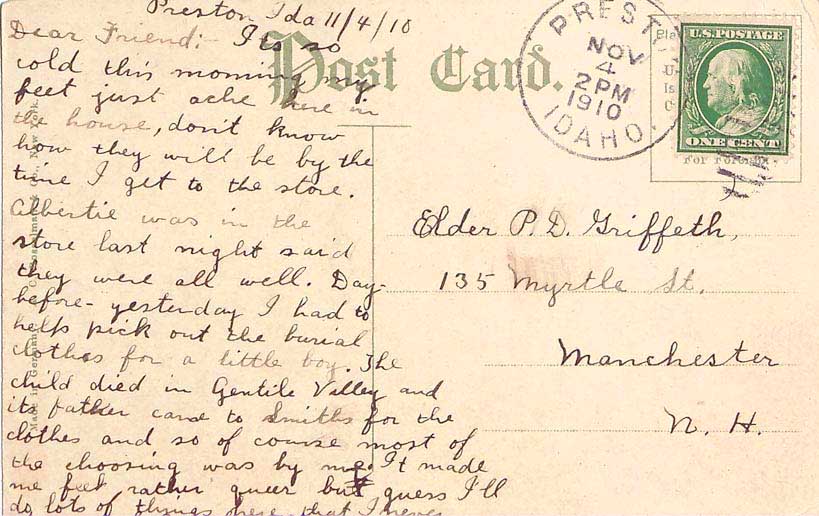 Preston Ida 11/4/10
Dear Friend:- Its so
cold this morning my
feet just ache here in
the house, don't know
how they will be by the
time I get to the store.
Albertie was in the
store last night said
they were all well. Day-
before-yesterday I had to
help pick out the burial
clothes for a little boy. The
child died in Gentile Valley and
its father came to Smiths for the
clothes and so of course most of
the choosing was by me. It made
me feel rather queer but guess I'll
do lots of things here that I never
Post Card.
PREST
NOV
4
2PM
1910
IDAHO.
U.S. POSTAGE
ONE CENT
For Foreign
Elder P. D. Griffeth,
135 Myrtle St.
Manchester
N. H.
Made in Germany
New York